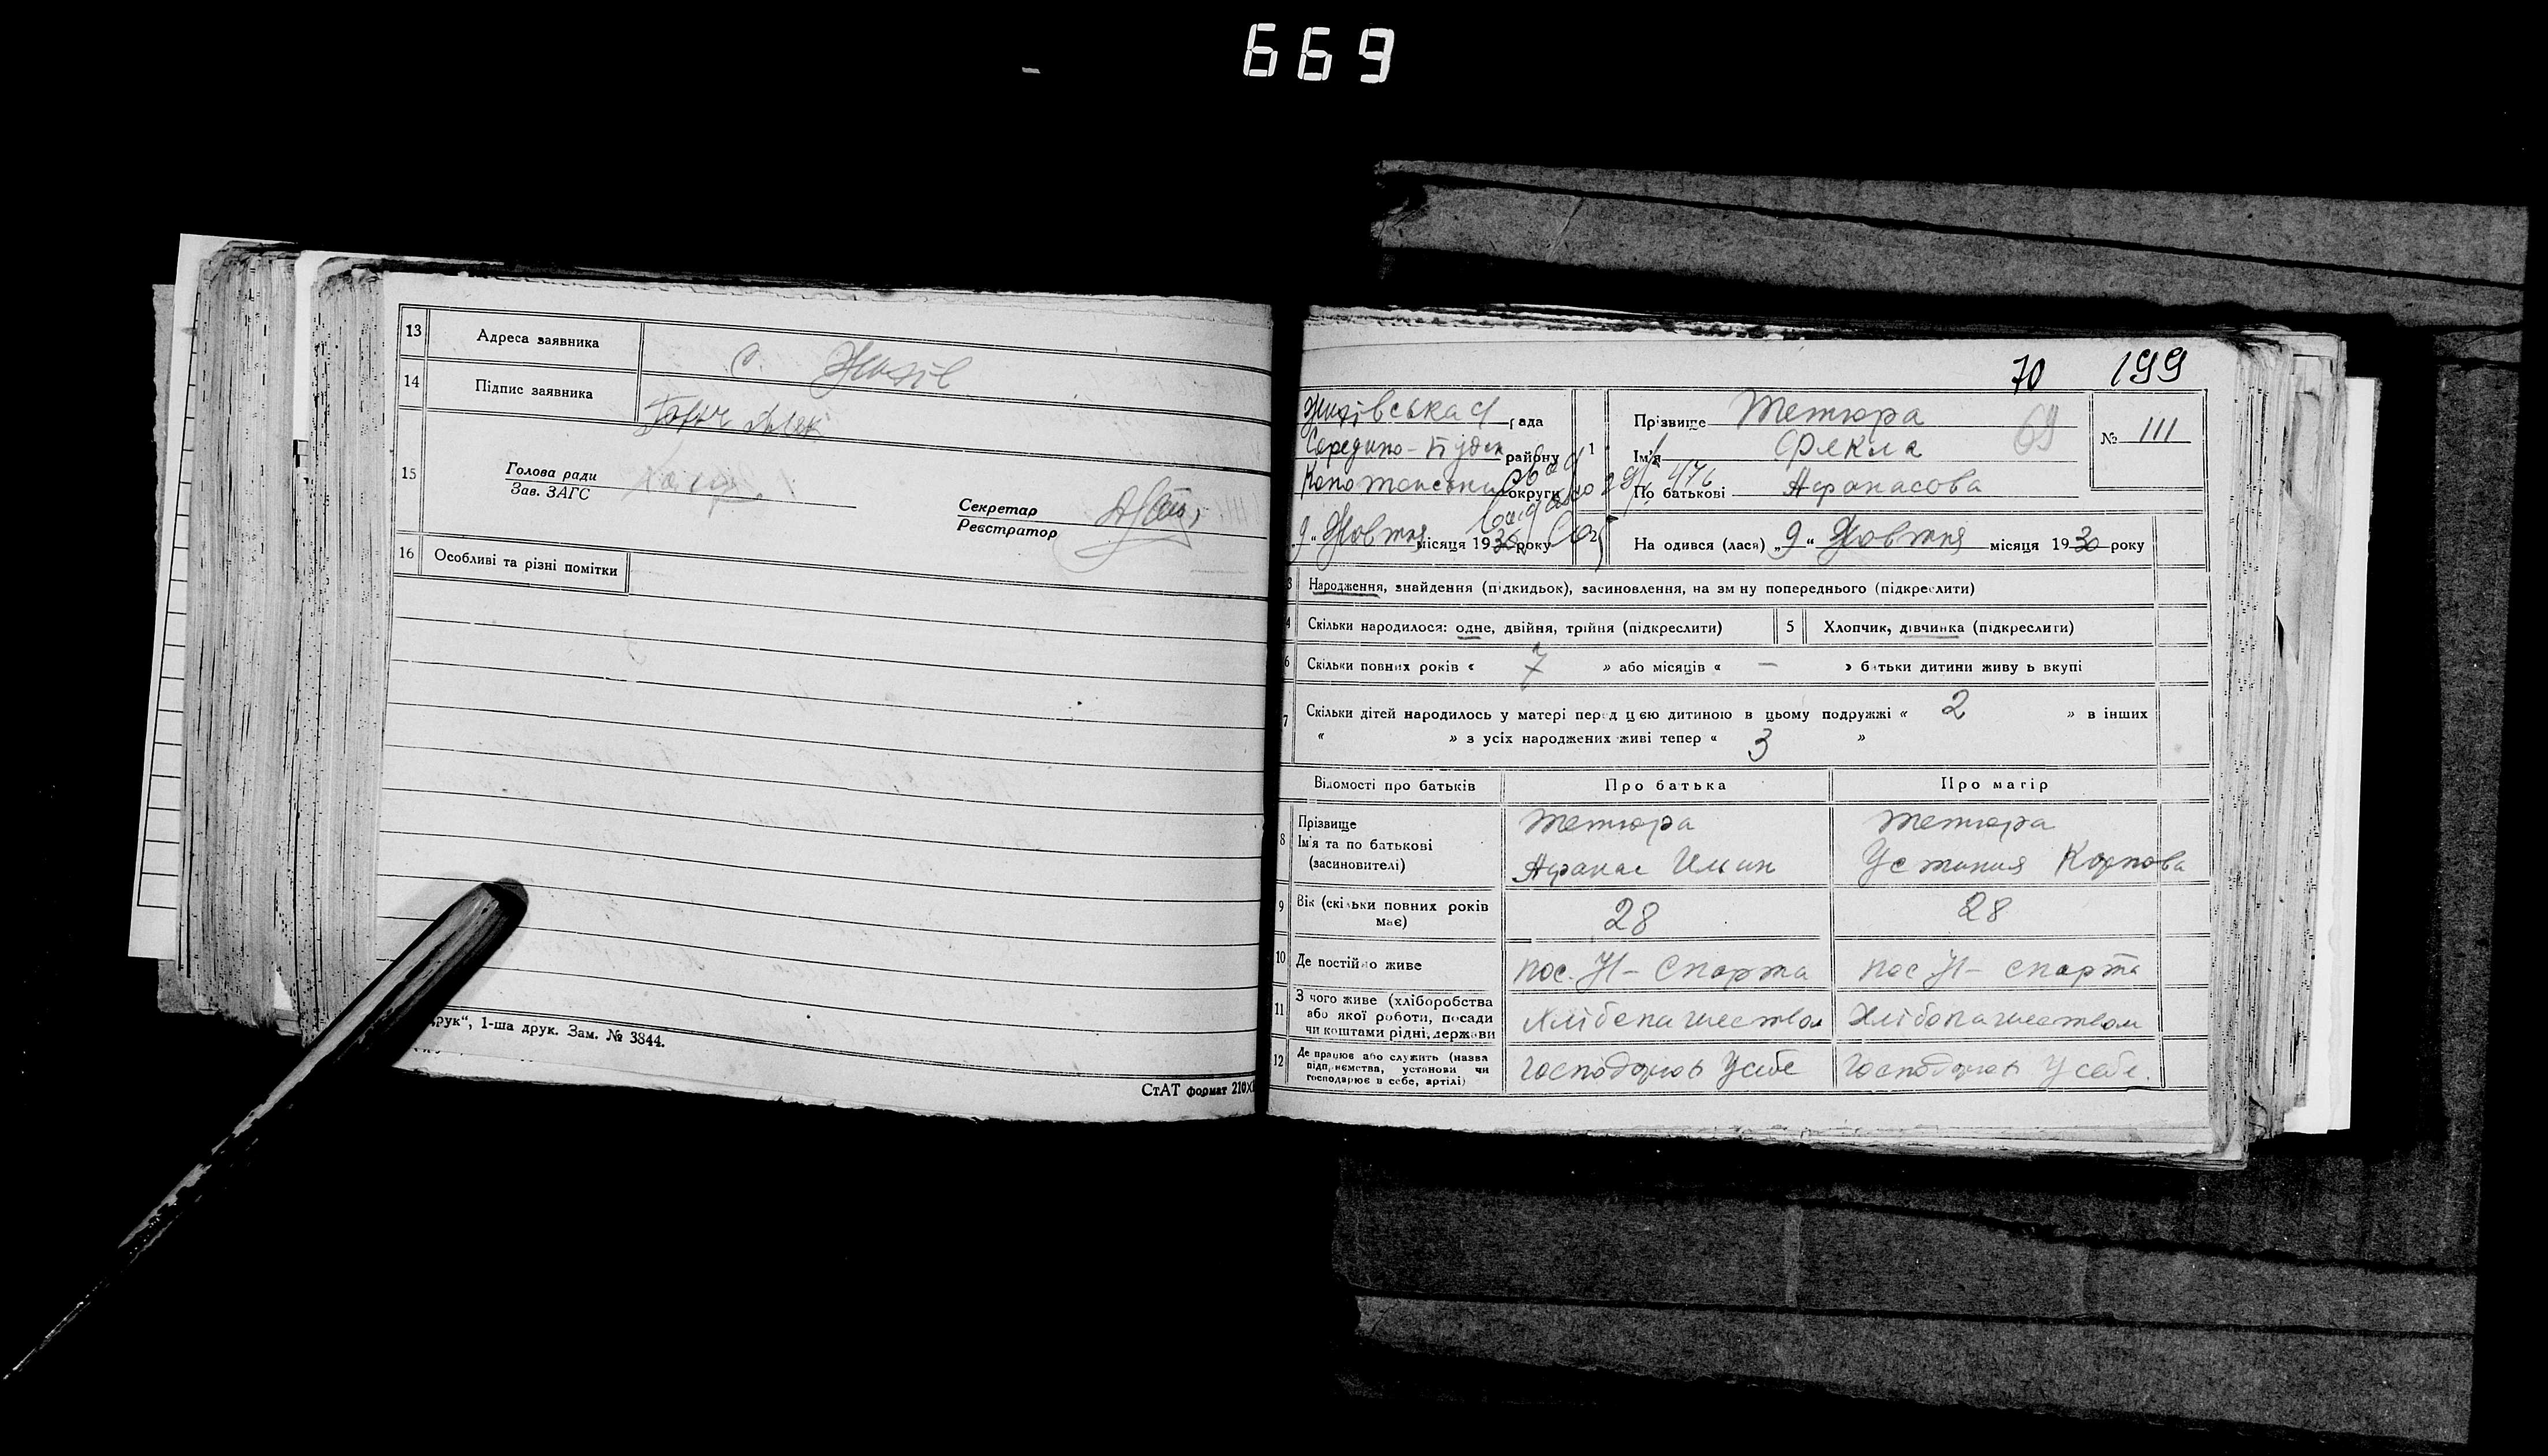 669
13 Адреса заявника С. Жихів
14 Підпис заявника
15 Голова ради
Зав. ЗАГС
Секретар
Реєстратор
16 Особливі та різні помітки
друк“, 1-ша друк. Зам. № 3844.
СтАТ формат 210X
70 199
Жихівська рада
Середино-Буден району
Конотопськ округи
9 „Жовтня місяця 1930 року
476
1 Прізвище Тетюра
69
Ім'я Фякла
По батькові Афанасова
№ 111
2 На одився (лася) „9“ Жовтня місяця 1930 року
3 Народження, знайдення (підкидьок), засиновлення, на зм ну попереднього (підкреслити)
4 Скільки народилося: одне, двійня, трійня (підкреслити) 5 Хлопчик, дівчинка (підкреслити)
6 Скільки повних років « 7 » або місяців « — » батьки дитини живу ь вкупі
7 Скільки дітей народилось у матері перед цією дитиною в цьому подружжі « 2 » в інших
« » з усіх народжених живі тепер « 3 »
Відомості про батьків Про батька Про матір
8 Прізвище Тетюра Тетюра
Ім'я та по батькові
(засиновителі) Афанас Ильин Устиния Карпова
9 Вік (скільки повних років
має) 28 28
10 Де постійно живе пос. Н- Спарта пос Н- спарта
11 З чого живе (хліборобства
або якої роботи, посади
чи коштами рідні, держави Хлібопашеством Хлібопашеством
12 Де працює або служить (назва
підприємства, установи чи
господарює в себе, артілі) Господарюв Усебе Господарюв Усебе.